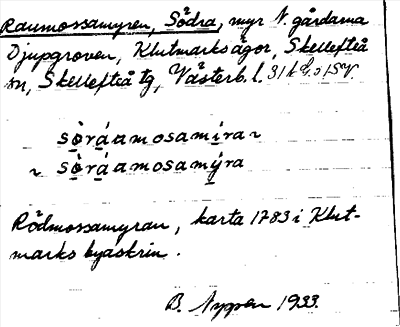 Raumossamyren, Södra, myr N. gårdarna
Djupgroven, Klutmarks ägor, Skellefteå
sn, Skellefteå tg, Västerb. l.
sòráamosamíra ~
~ sòráamosamýra
Rödmossamyran, karta 1783 i Klut-
marks byaskrin.
B. Nyppen 1933.